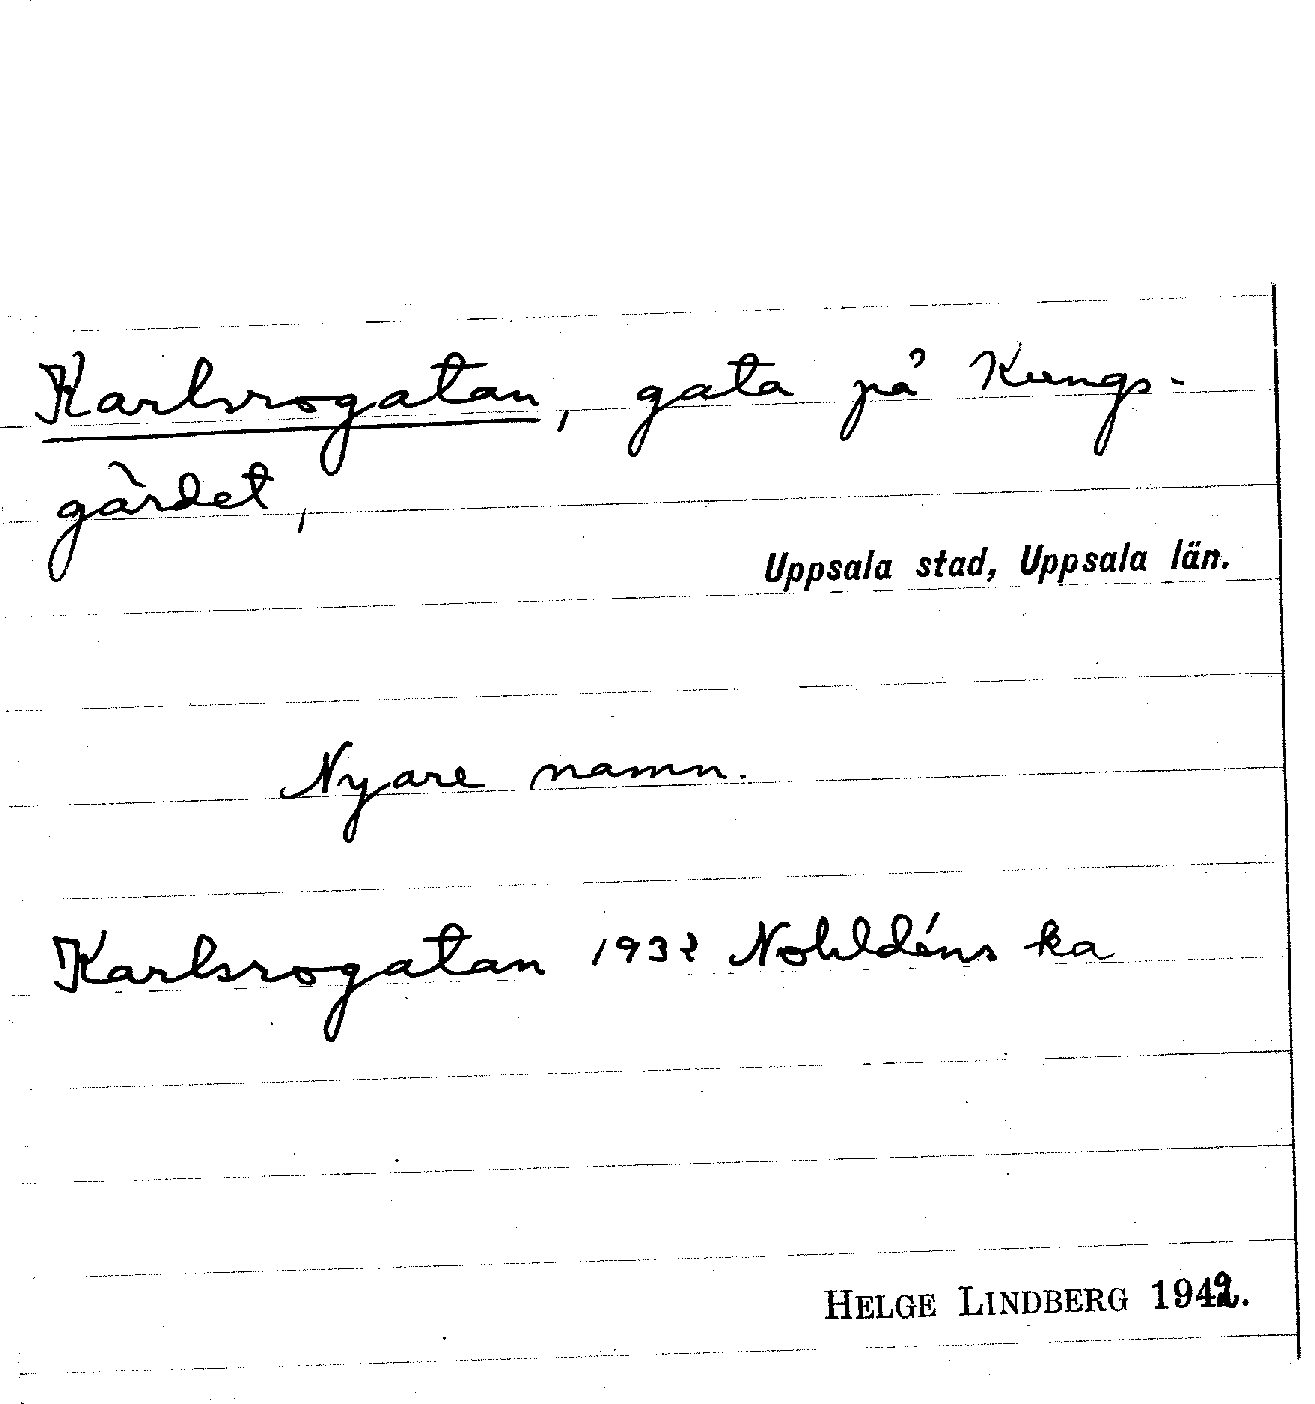 Karlsrogatan, gata på Kungs-
gärdet,
Uppsala stad, Uppsala län.
Nyare namn.
Karlsrogatan 1932 Nohldéns ka
HELGE LINDBERG 1942.